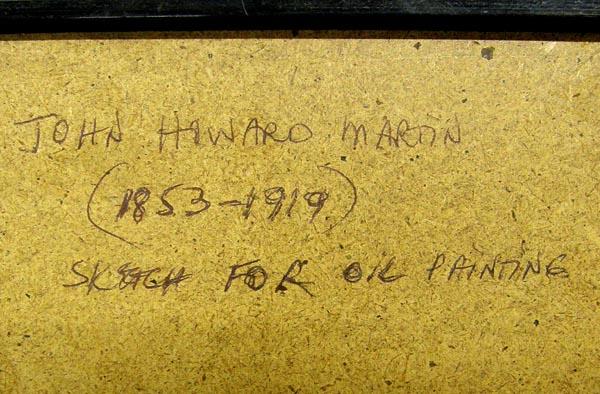 JOHN HOWARD MARTIN
(1853-1919)
SKETCH FOR OIL PAINTING